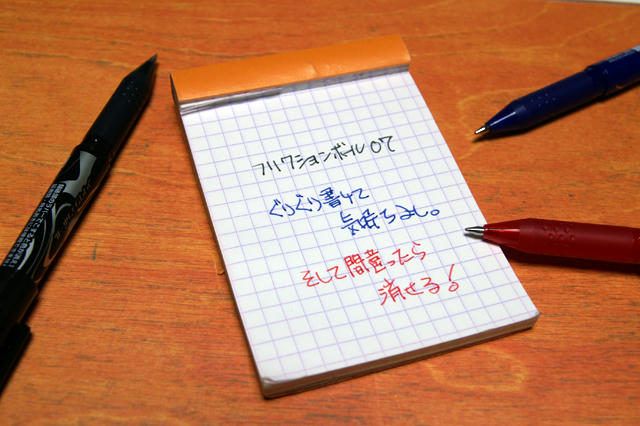 フリクションボール07
ぐりぐり書いて
気持ちよし。
そして間違ったら
消せる！